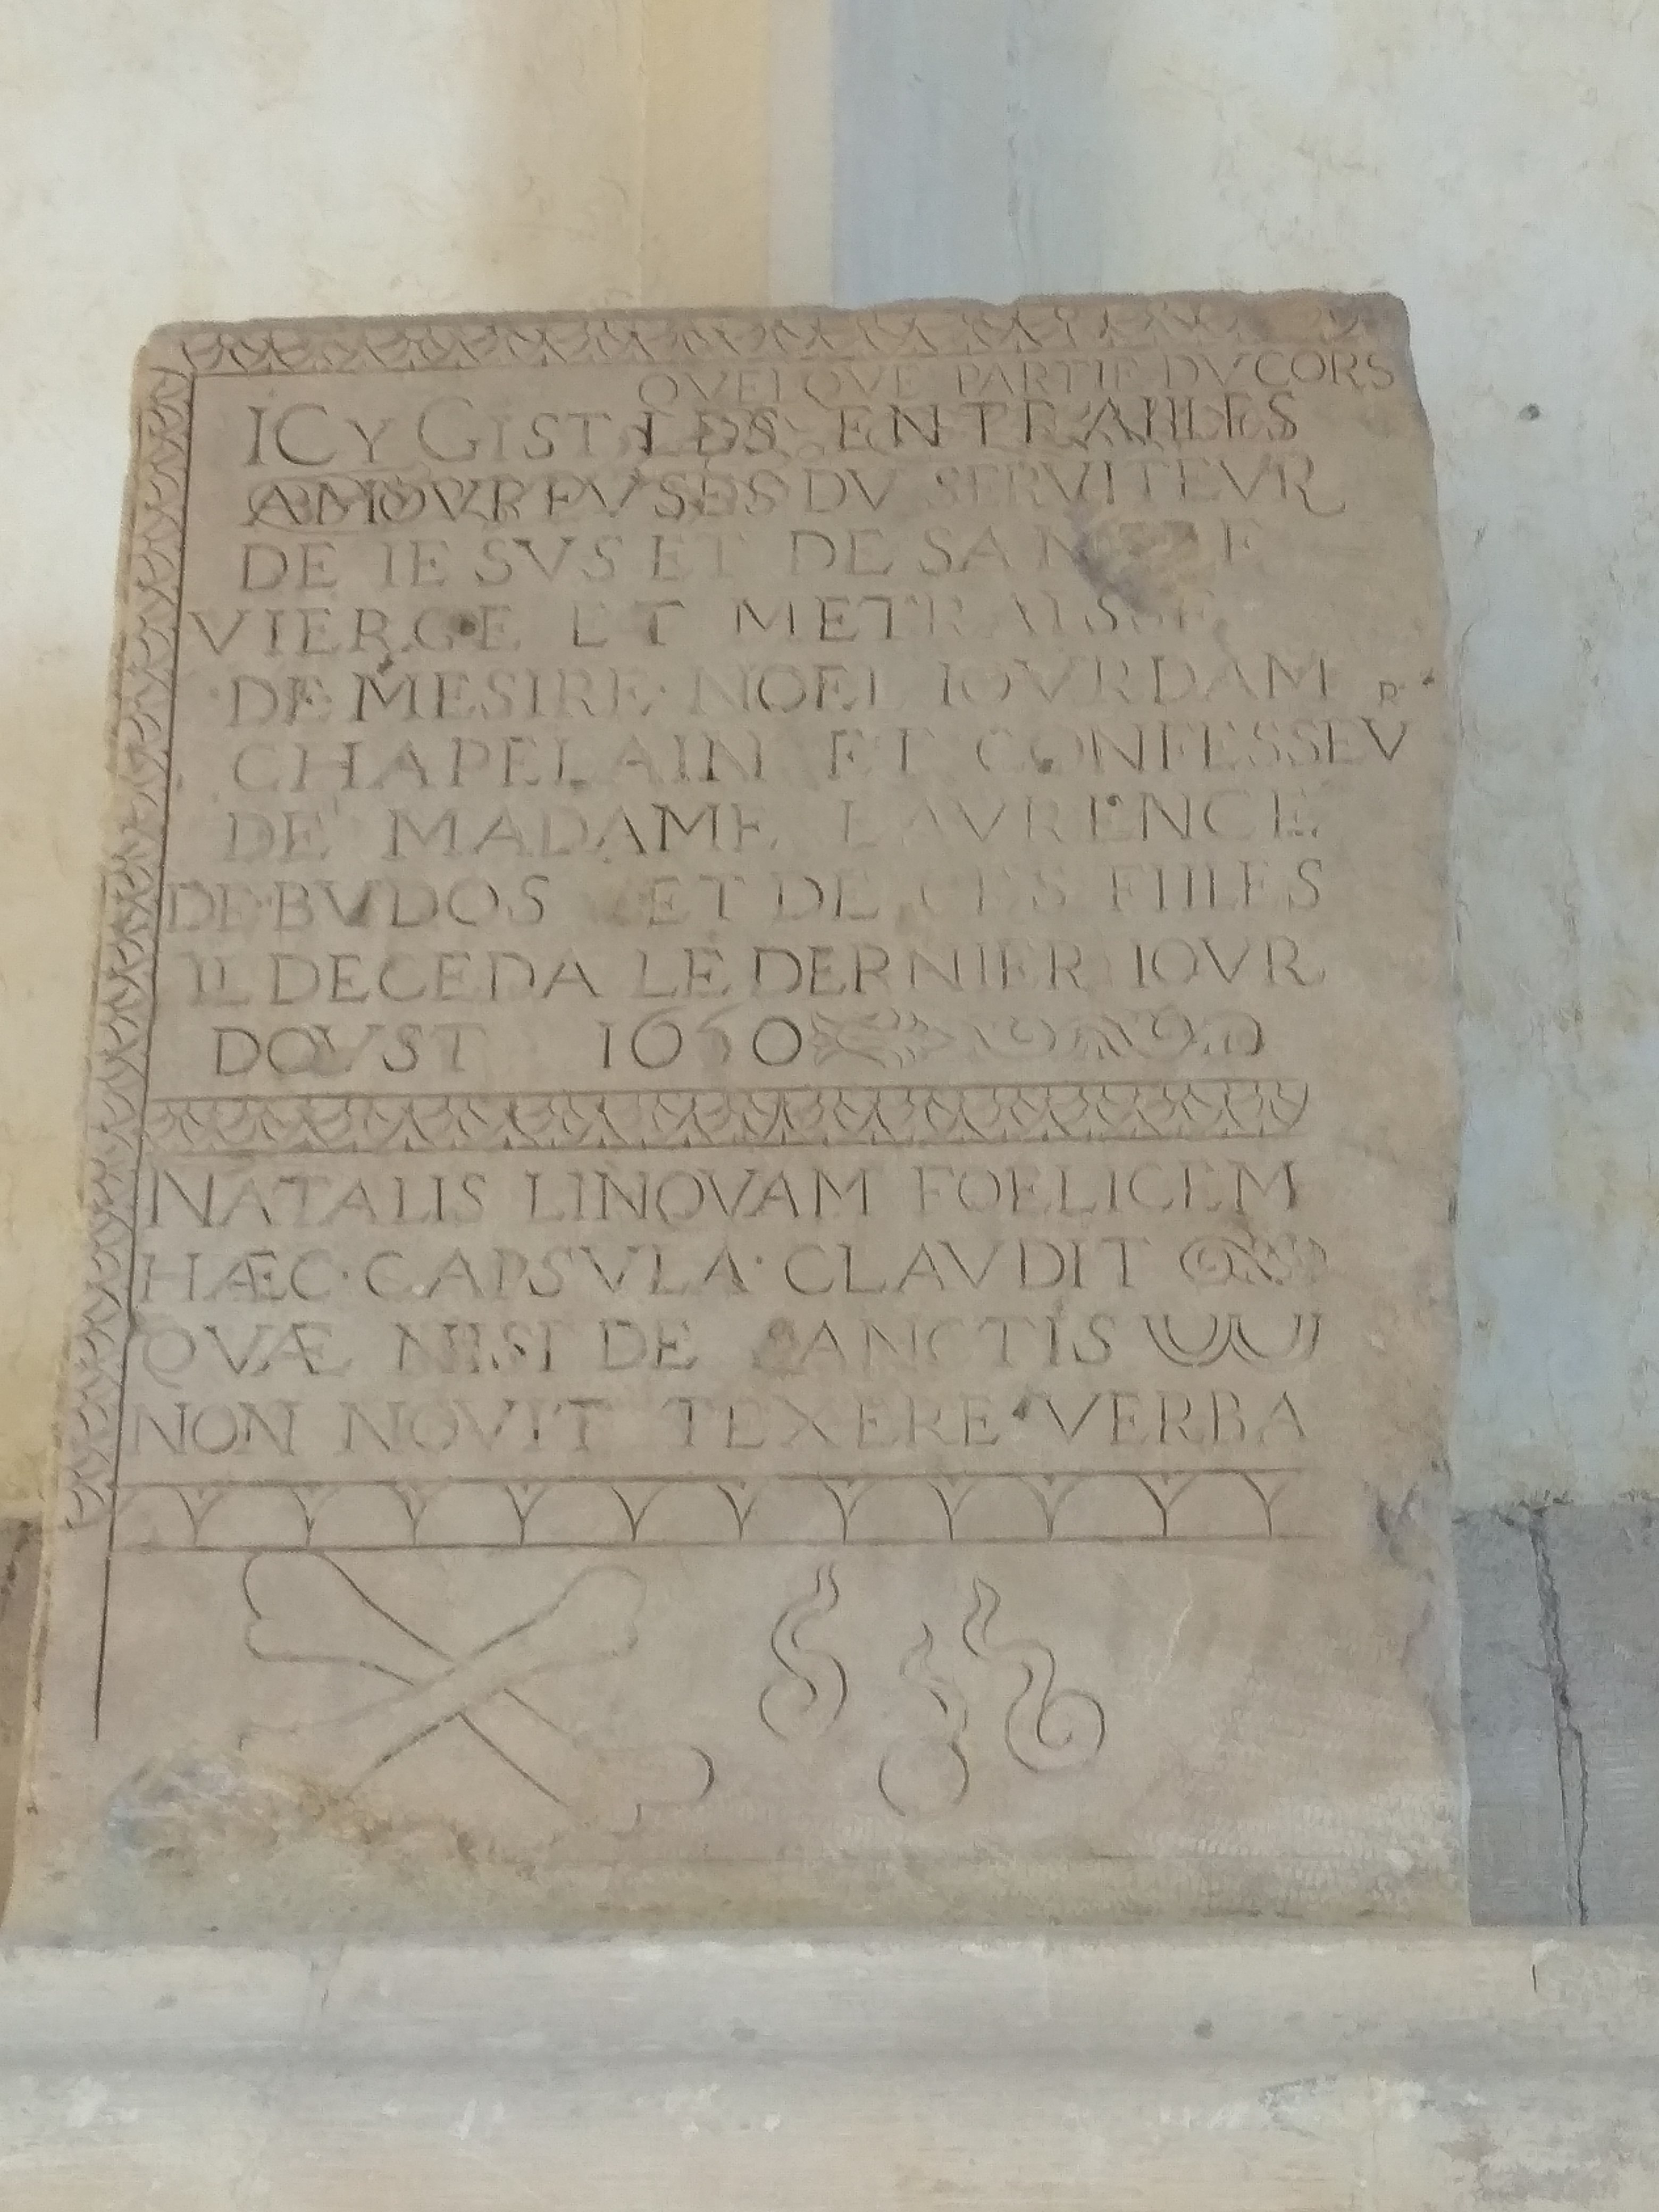 QVELQVE PARTIE DV CORS
ICY GIST LES ENTRAILLES
AMOVREVSES DV SERVITEVR
DE IESVS ET DE SA
VIERGE ET METRAISSE
DE MESIRE NOEL IOVRDAM
CHAPELAIN ET CONFESSEVR
DE MADAME LAVRENCE
DE BVDOS ET DE CES FIILES
IL DECEDA LE DERNIER IOVR
DOVST 1650
NATALIS LINQVAM FOELICEM
HÆC·CAPSVLA·CLAVDIT
QVÆ NISI DE SANCTIS
NON NOVIT TEXERE VERBA